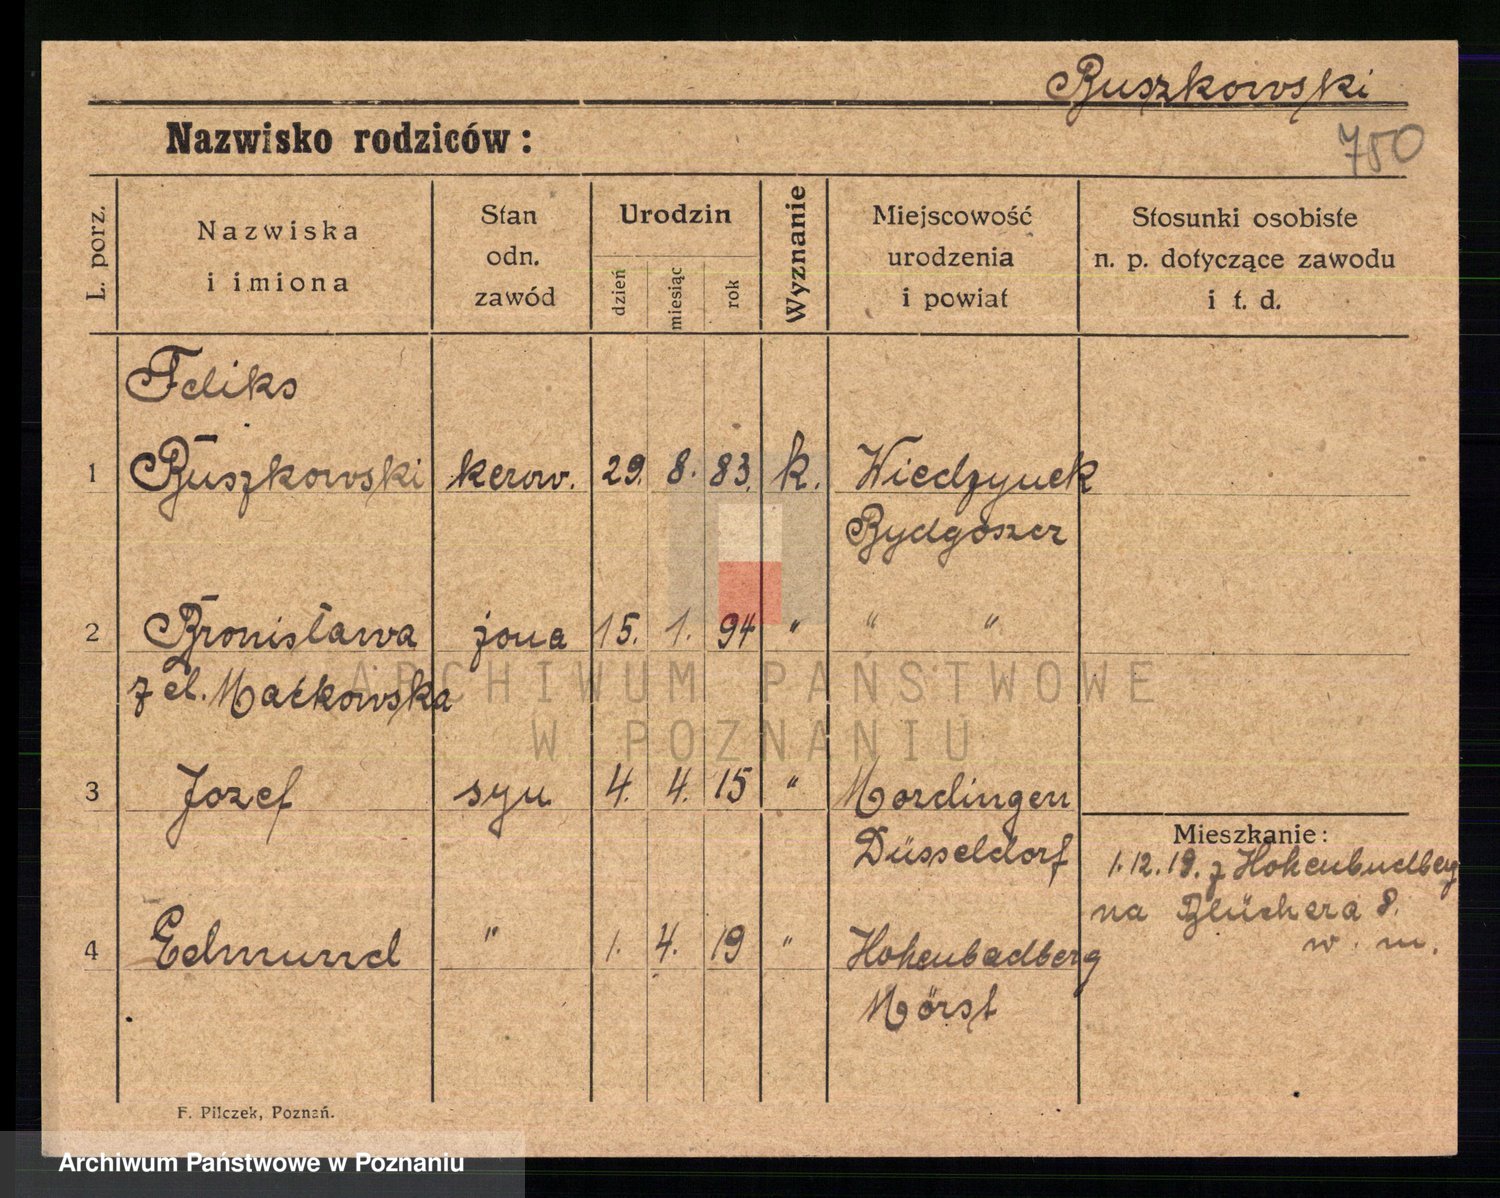 Buszkowski
Nazwisko rodziców:
750
L. porz.
Nazwiska
i imiona
Stan
odn.
zawód
Urodzin
dzień
miesiąc
rok
Wyznanie
Miejscowość
urodzenia
i powiat
Stosunki osobiste
n. p. dotyczące zawodu
i t. d.
Feliks
1 Buszkowski kerow. 29. 8. 83. k. Wiedzynek
Bydgoszcz
2 Bronisława żona 15. 1. 94 " " "
z el. Maćkowska
3 Jozef syn 4. 4. 15 " Mordingen
Düsseldorf
Mieszkanie:
1.12.19. z Hohenbudberg
na Blüchera 8.
w. m.
4 Edmund " 1. 4. 19 " Hohenbudberg
Mörst
F. Pilczek, Poznań.
ARCHIWUM PAŃSTWOWE
W POZNANIU
Archiwum Państwowe w Poznaniu